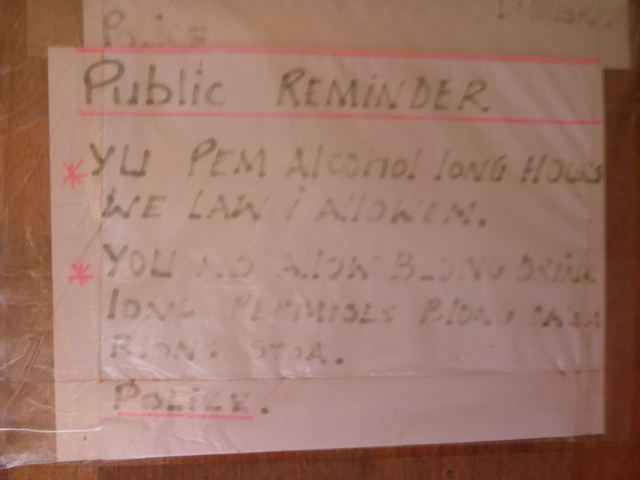 Police
Public REMINDER.
* YU PEM Alcohol long HOUS
WE LAW i AlloWEM.
* YOU NO AllOW BLONG DRINK
long PERMISES Blong
Blong STOA.
POLICE.